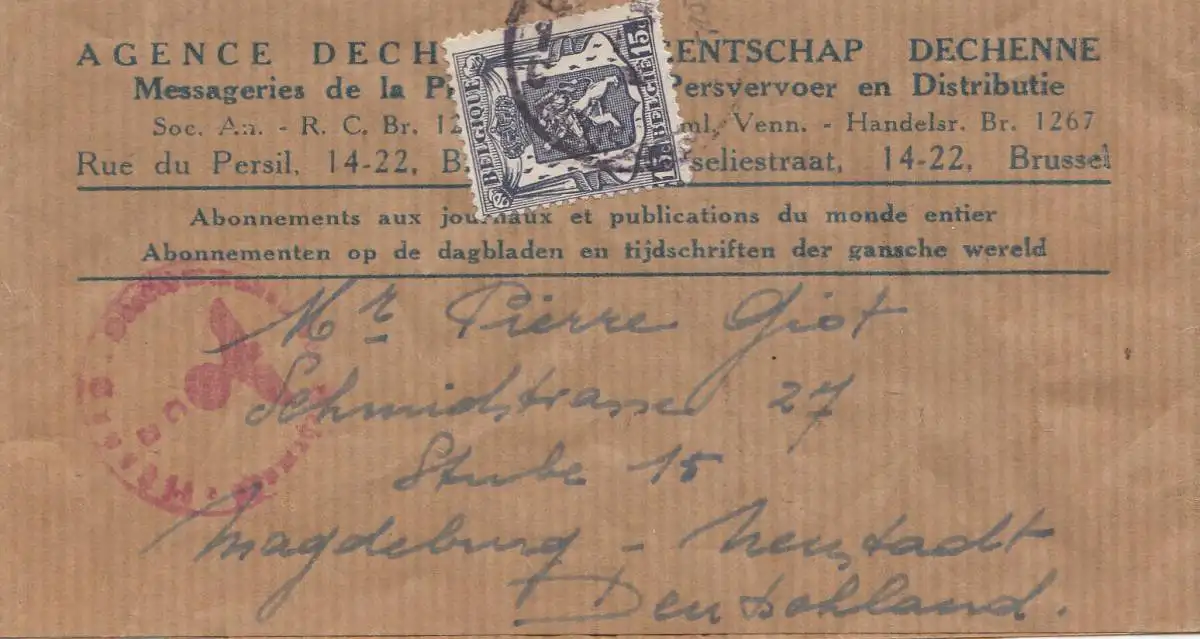 AGENCE DECH ENTSCHAP DECHENNE
Messageries de la P Persvervoer en Distributie
Soc. An. - R. C. Br. 12 ml. Venn. - Handelsr. Br. 1267
Rue du Persil, 14-22, B seliestraat, 14-22, Brussel
BELGIQUE 15c BELGIE 15c
Abonnements aux journaux et publications du monde entier
Abonnementen op de dagbladen en tijdschriften der gansche wereld
Mr Pierre Giot
Schmidtstrasse 27
Stube 15
Magdeburg - Neustadt
Deutschland.